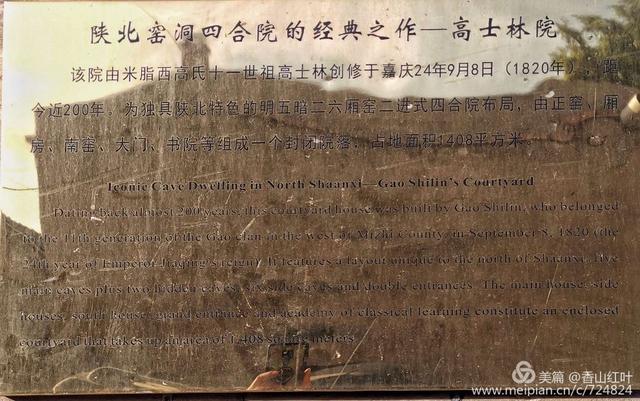 陕北窑洞四合院的经典之作—高士林院
该院由米脂西高氏十一世祖高士林创修于嘉庆24年9月8日（1820年），距
今近200年。为独具陕北特色的明五暗二六厢窑二进式四合院布局，由正窑、厢
房、南窑、大门、书院等组成一个封闭院落，占地面积1408平方米。
Iconic Cave Dwelling in North Shaanxi—Gao Shilin's Courtyard
Dating back almost 200 years, this courtyard house was built by Gao Shilin, who belonged
to the 11th generation of the Gao clan in the west of Mizhi County, in September 8, 1820 (the
24th year of Emperor Jiaqing's reign). It features a layout unique to the north of Shaanxi, five
main caves plus two hidden caves, six side caves and double entrances. The main house, side
houses, south house, grand entrance and academy of classical learning constitute an enclosed
courtyard that takes up an area of 1,408 square meters.
美篇 @香山红叶
www.meipian.cn/c/724824